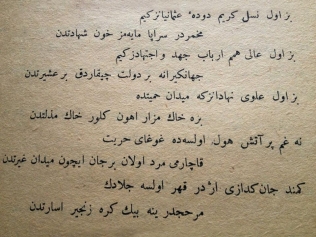 بز اول نسل كریم دودهٔ عثمانیانزكیم
مخمردر سراپا مایه‌مز خون شهادتدن
بز اول عالی همم ارباب جهد و اجتهادزكیم
جهانكیرانه بر دولت چیقاردق بر عشیرتدن
بز اول علوی نهادانزكه میدان حمیتده
بزه خاك مزار اهون كلور خاك مذلتدن
نه غم پر آتش هول اولسه‌ده غوغای حریت
قاچارمی مرد اولان بر جان ایچون میدان غیرتدن
كمند جان‌كدازی اژدر قهر اولسه جلادك
مرجحدر ینه بیك كره زنجیر اسارتدن